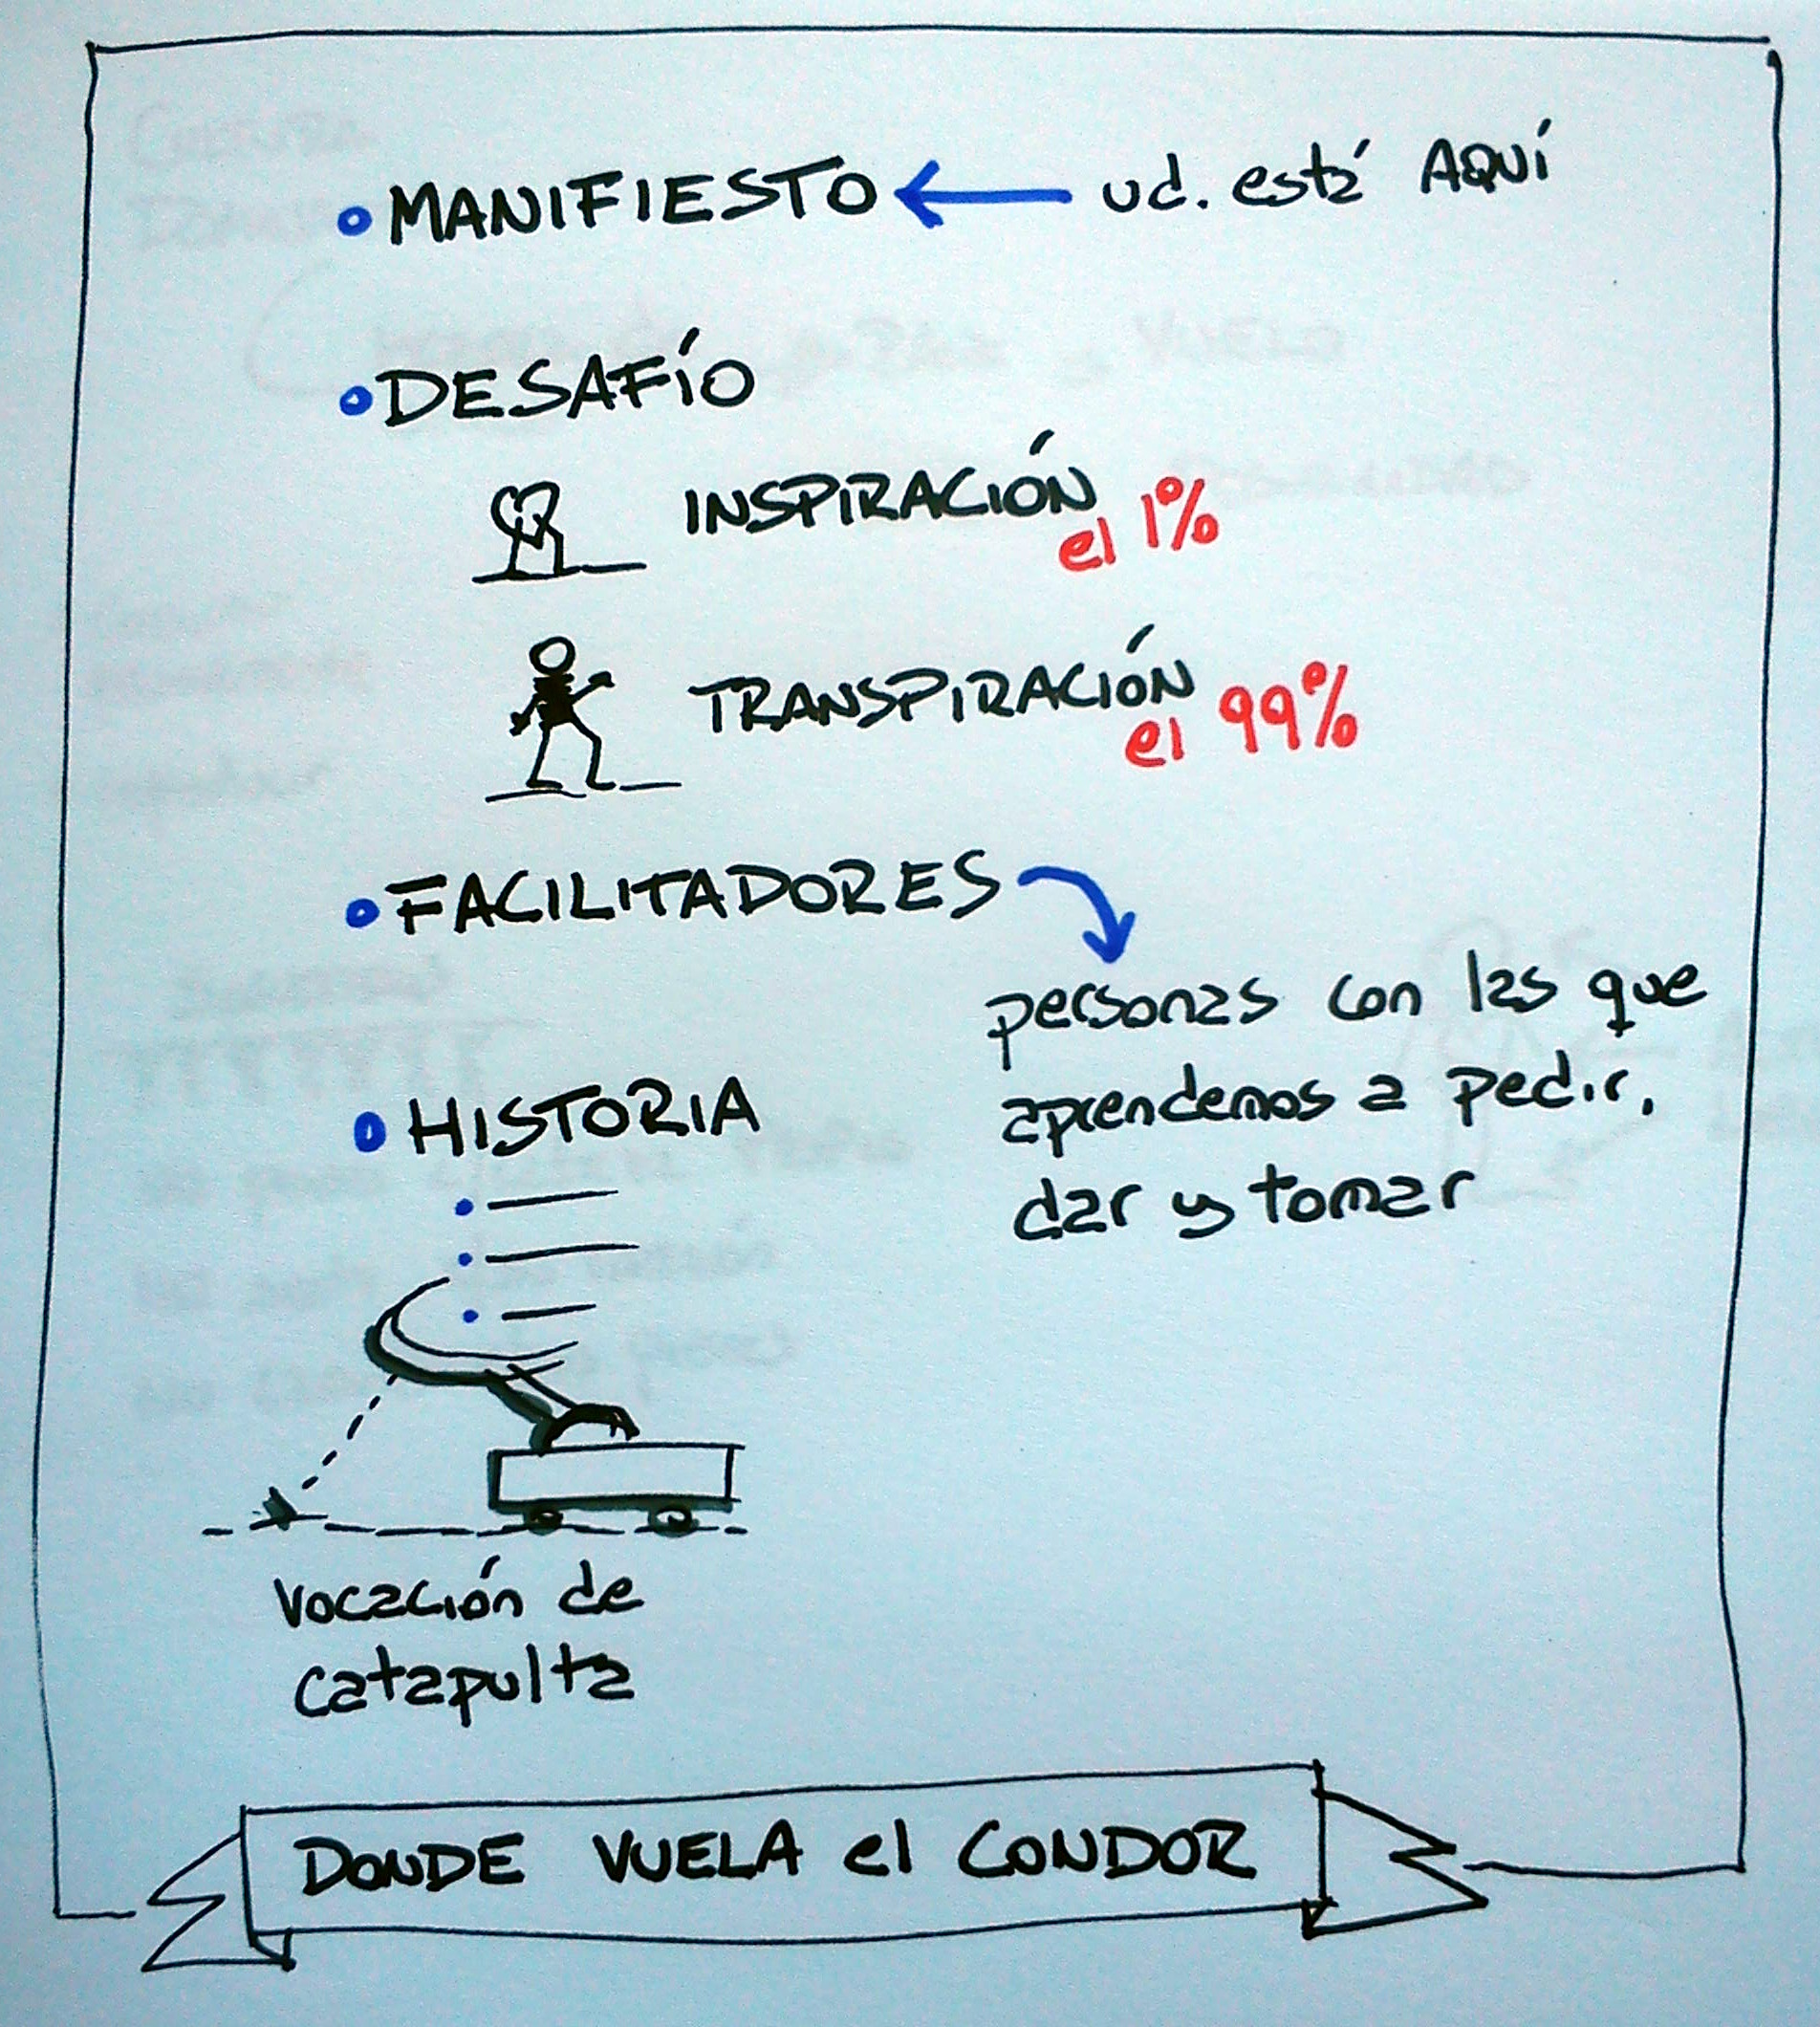 • MANIFIESTO ← ud. está AQUÍ
• DESAFÍO
INSPIRACIÓN el 1%
TRANSPIRACIÓN el 99%
• FACILITADORES
personas con las que
aprendemos a pedir,
dar y tomar
• HISTORIA
vocación de
catapulta
DONDE VUELA el CONDOR